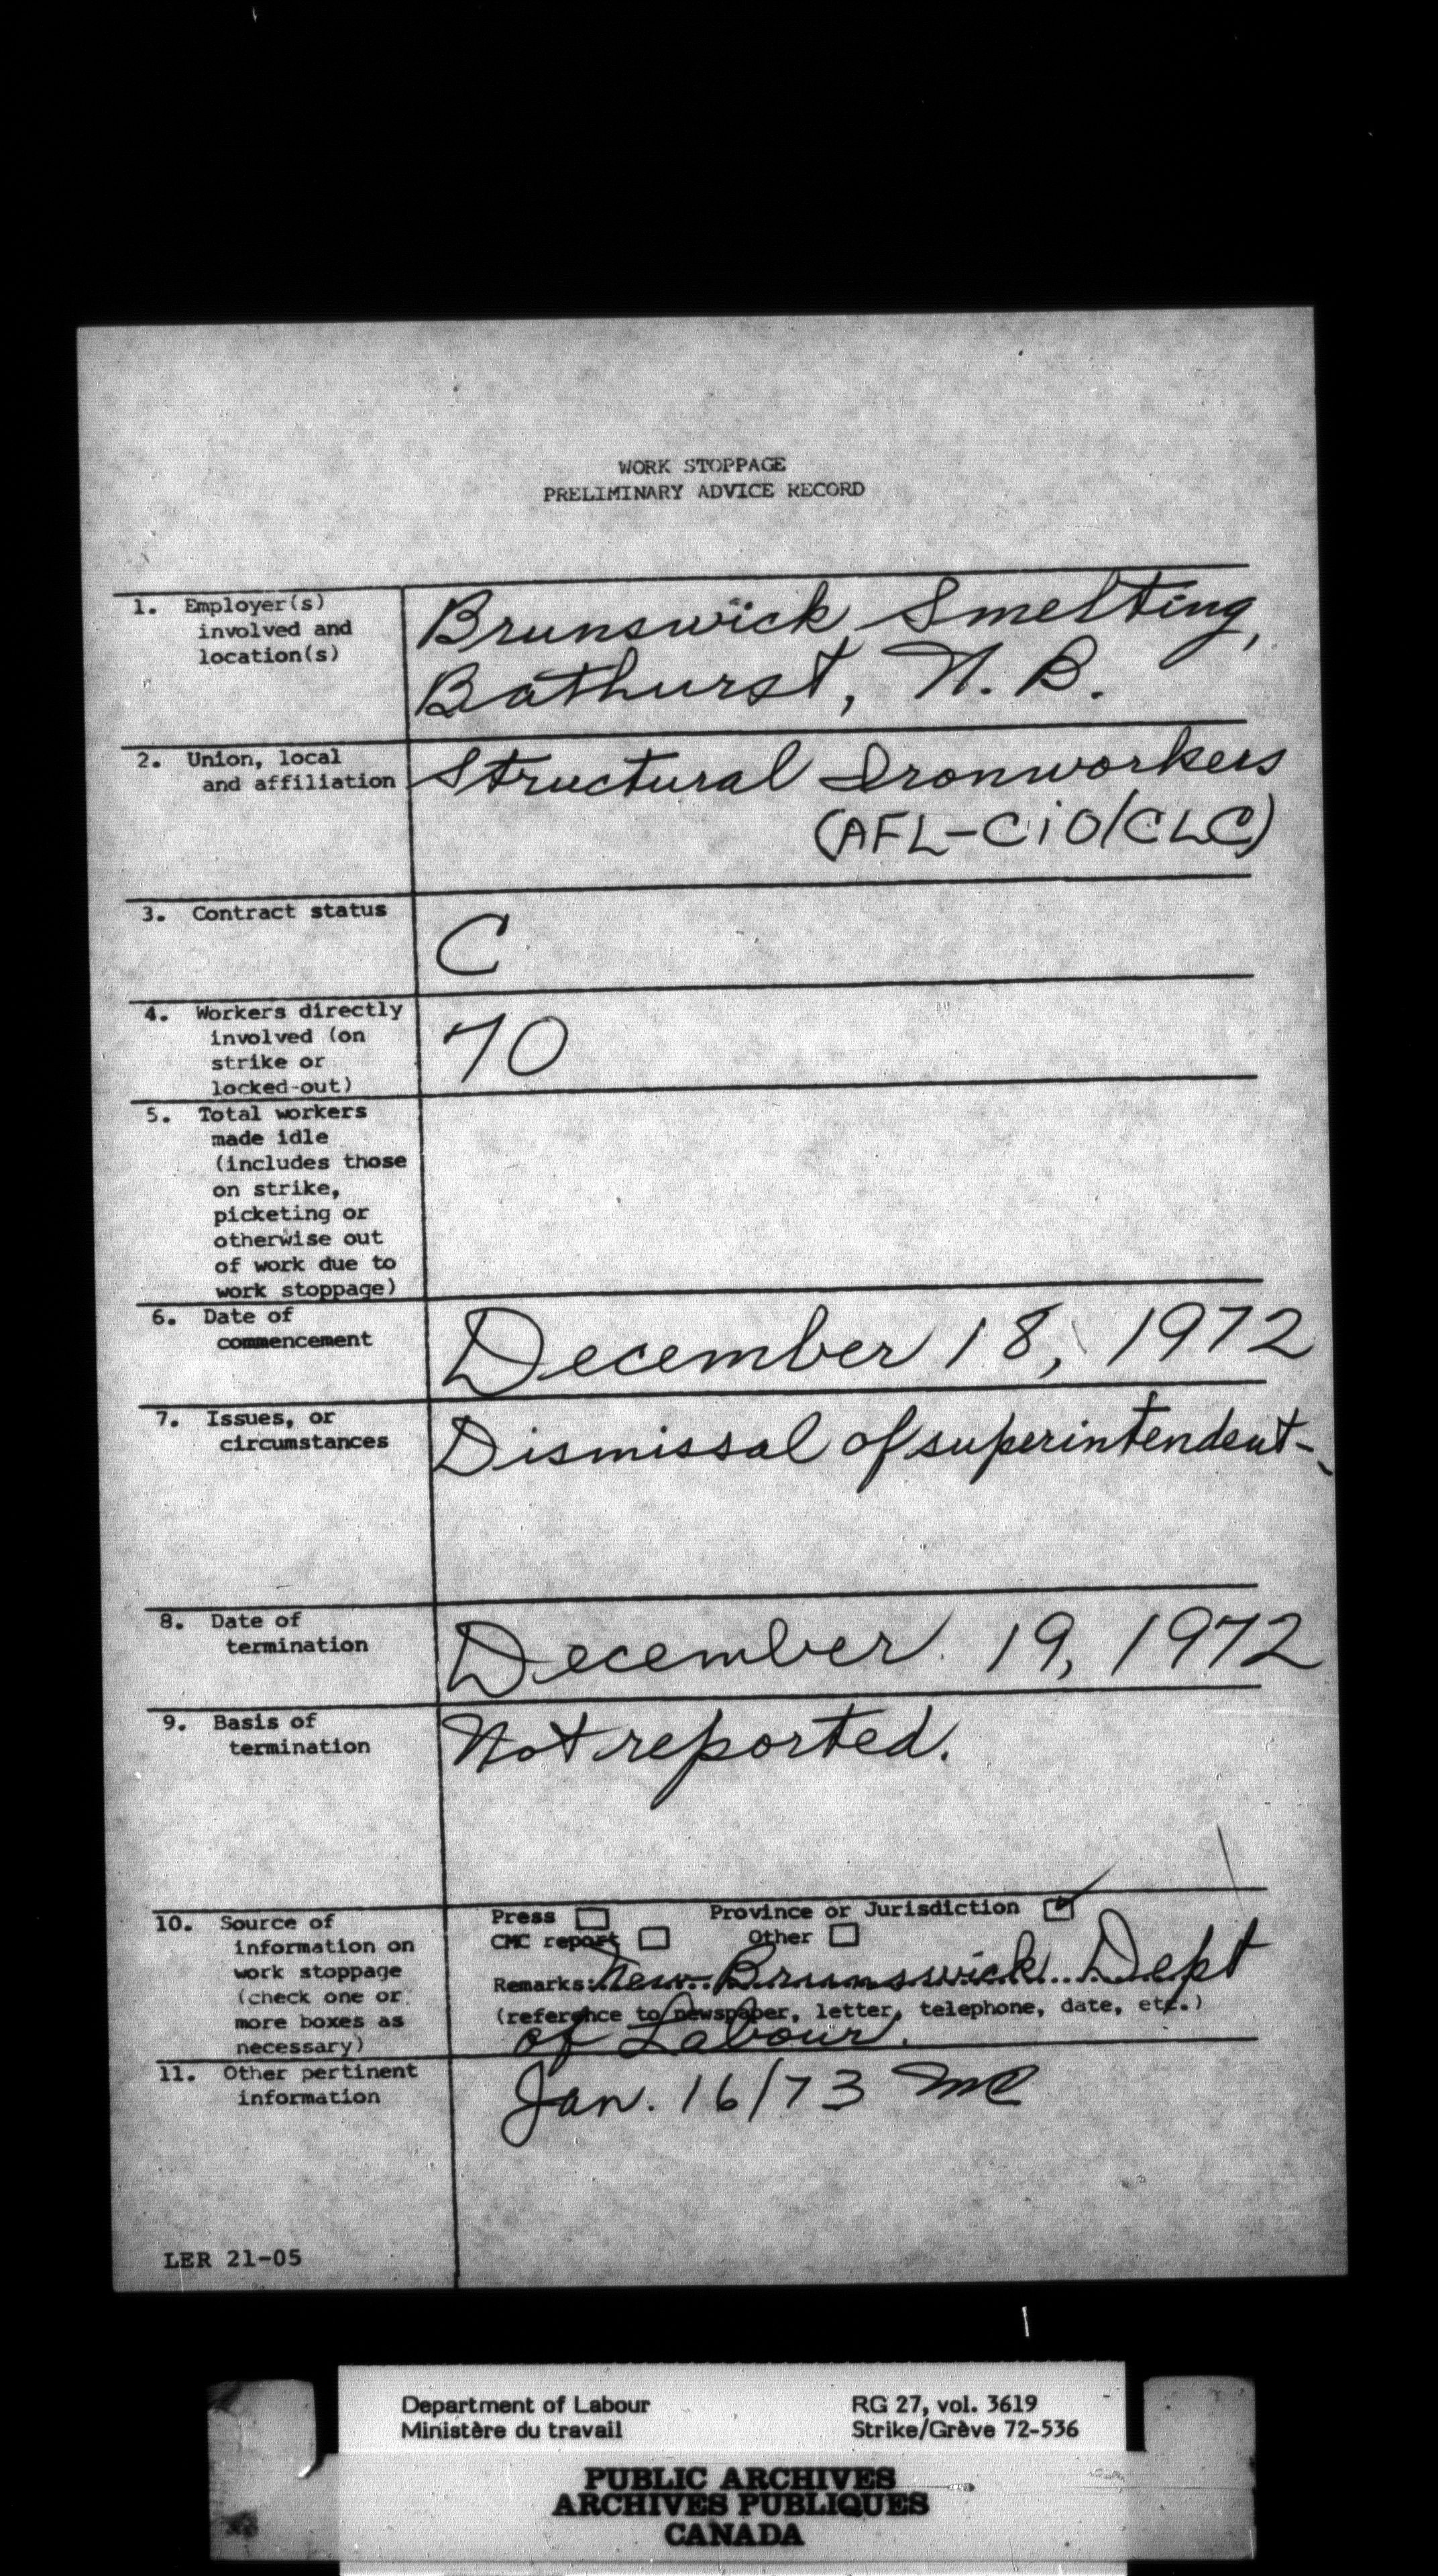 WORK STOPPAGE
PRELIMINARY ADVICE RECORD
1. Employer(s)
involved and
location(s)
Brunswick Smelting,
Bathurst, N. B.
2. Union, local
and affiliation
Structural Ironworkers
(AFL-CiO/CLC)
3. Contract status
C
4. Workers directly
involved (on
strike or
locked-out)
70
5. Total workers
made idle
(includes those
on strike,
picketing or
otherwise out
of work due to
work stoppage)
6. Date of
commencement
December 18, 1972
7. Issues, or
circumstances
Dismissal of superintendent-
8. Date of
termination
December 19, 1972
9. Basis of
termination
Not reported.
10. Source of
information on
work stoppage
(check one or
more boxes as
necessary)
Press Province or Jurisdiction
CMC report Other
Remarks: New Brunswick Dept
(reference to newspaper, letter, telephone, date, etc.)
of Labour.
11. Other pertinent
information
Jan. 16/73
LER 21-05
Department of Labour RG 27, vol. 3619
Ministère du travail Strike/Grève 72-536
PUBLIC ARCHIVES
ARCHIVES PUBLIQUES
CANADA